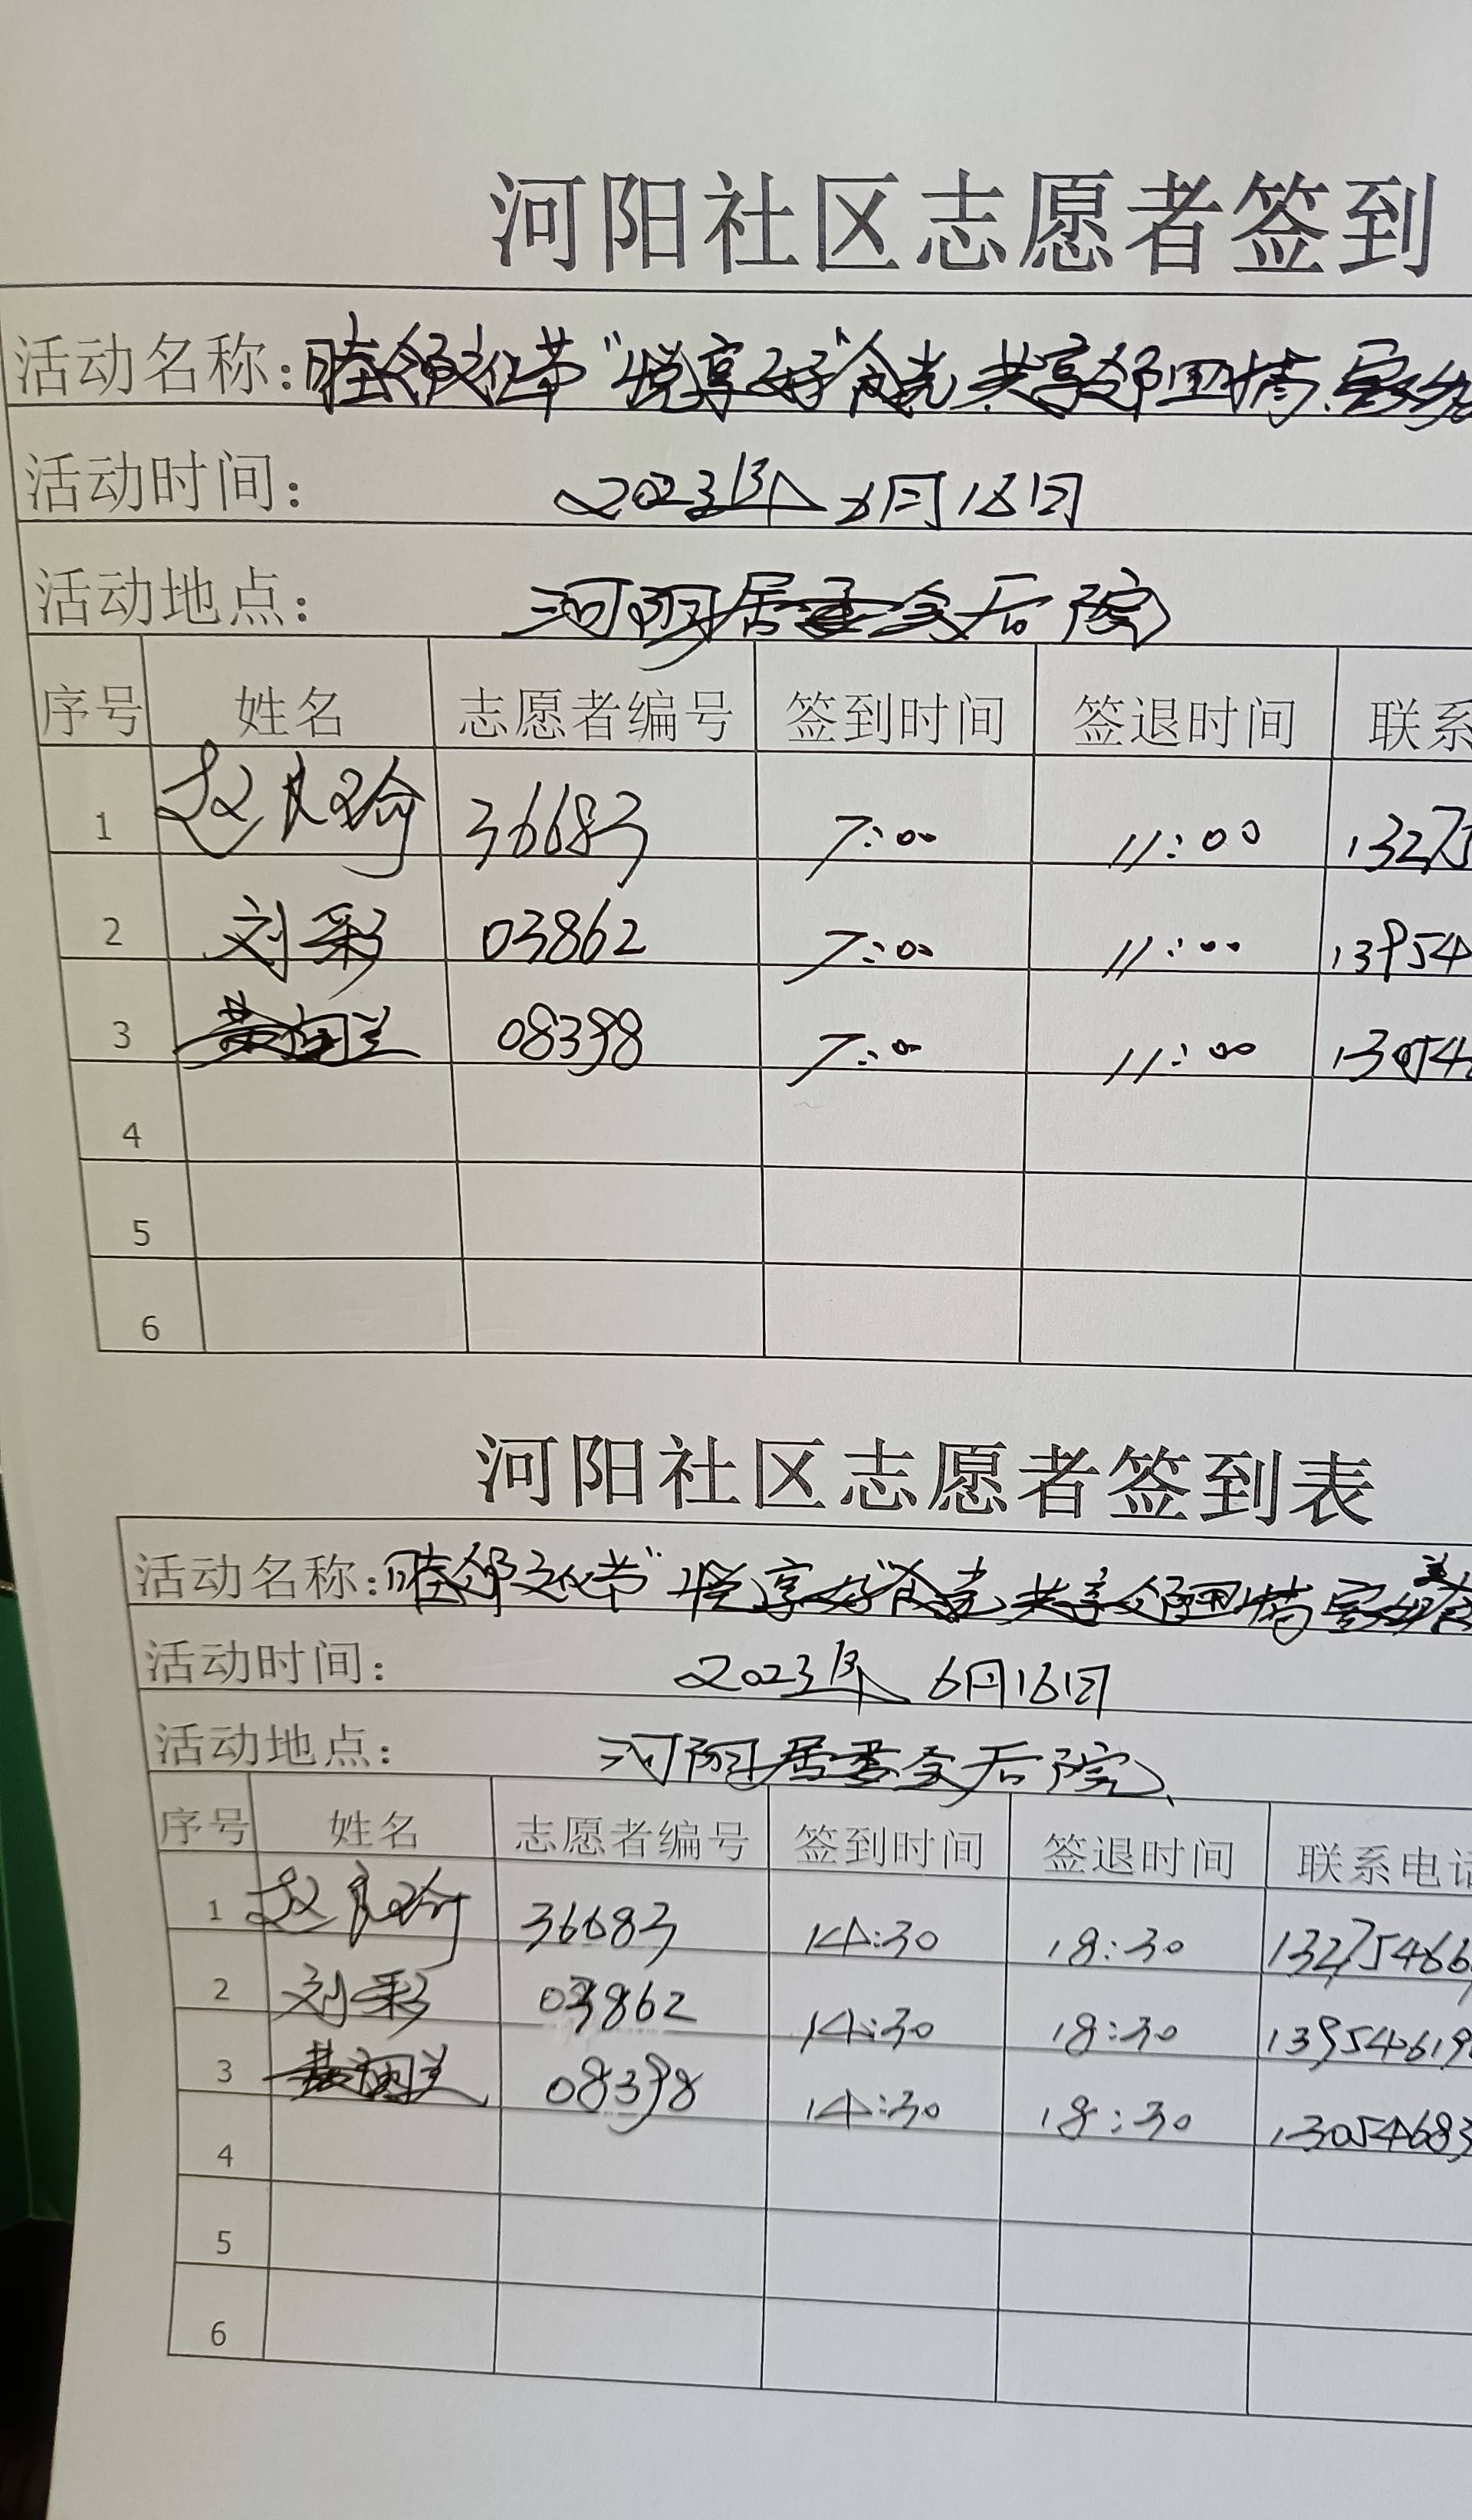 河阳社区志愿者签到
活动名称：睦邻文化节"悦享好"食光 共享邻里情
活动时间： 2023年6月18日
活动地点： 河阳居委会后院
序号 姓名 志愿者编号 签到时间 签退时间 联系
1 赵良瑜 36683 7:00 11:00 13275
2 刘彩 03862 7:00 11:00 13954
3 08398 7:00 11:00 13054
4
5
6
河阳社区志愿者签到表
活动名称：睦邻文化节"悦享好"食光 共享邻里情
活动时间： 2023年6月16日
活动地点： 河阳居委会后院
序号 姓名 志愿者编号 签到时间 签退时间 联系电话
1 赵良瑜 36683 14:30 18:30 13275466
2 刘彩 03862 14:30 18:30 13954619
3 08398 14:30 18:30 13054683
4
5
6